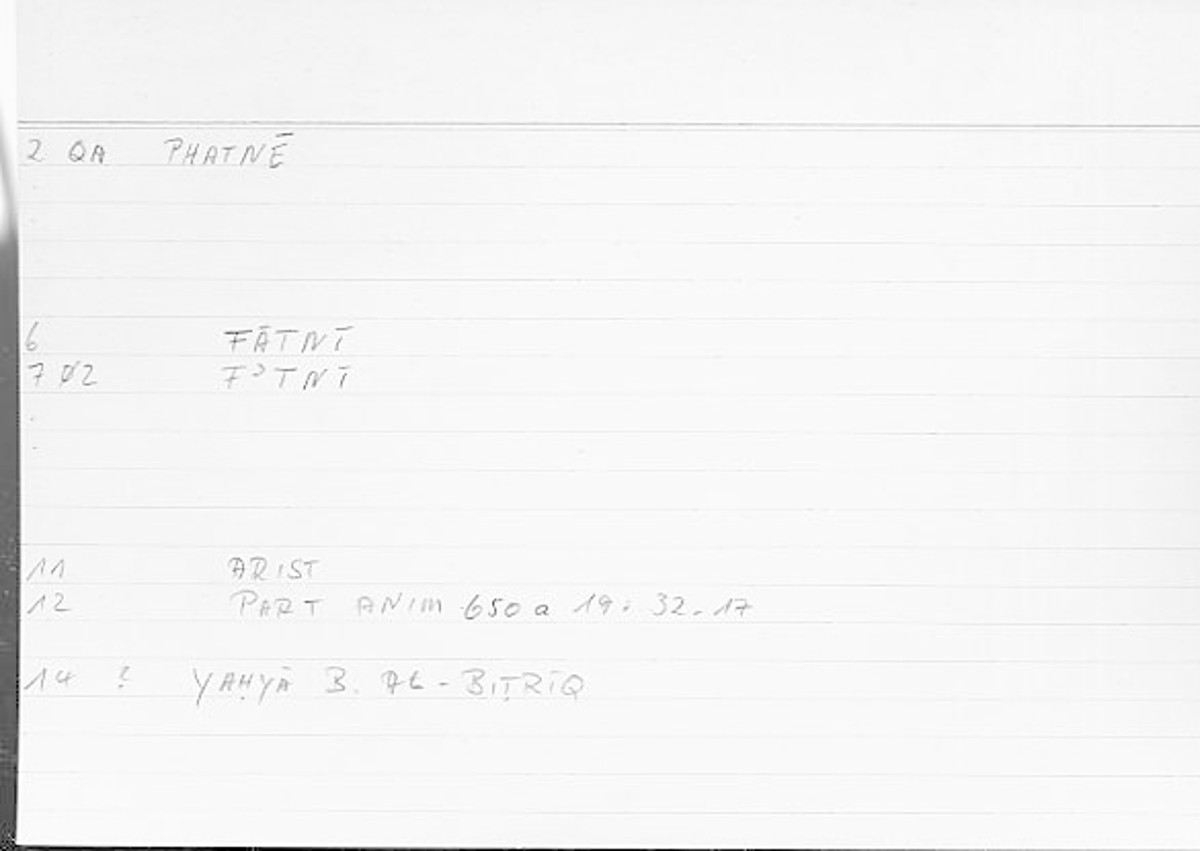 2 QA PHATNĒ
6 FĀTNĪ
7 02 FʾTNĪ
11 ARIST
12 PART ANIM 650 a 19 : 32.17
14 ? YAḤYĀ B. AL-BIṬRĪQ